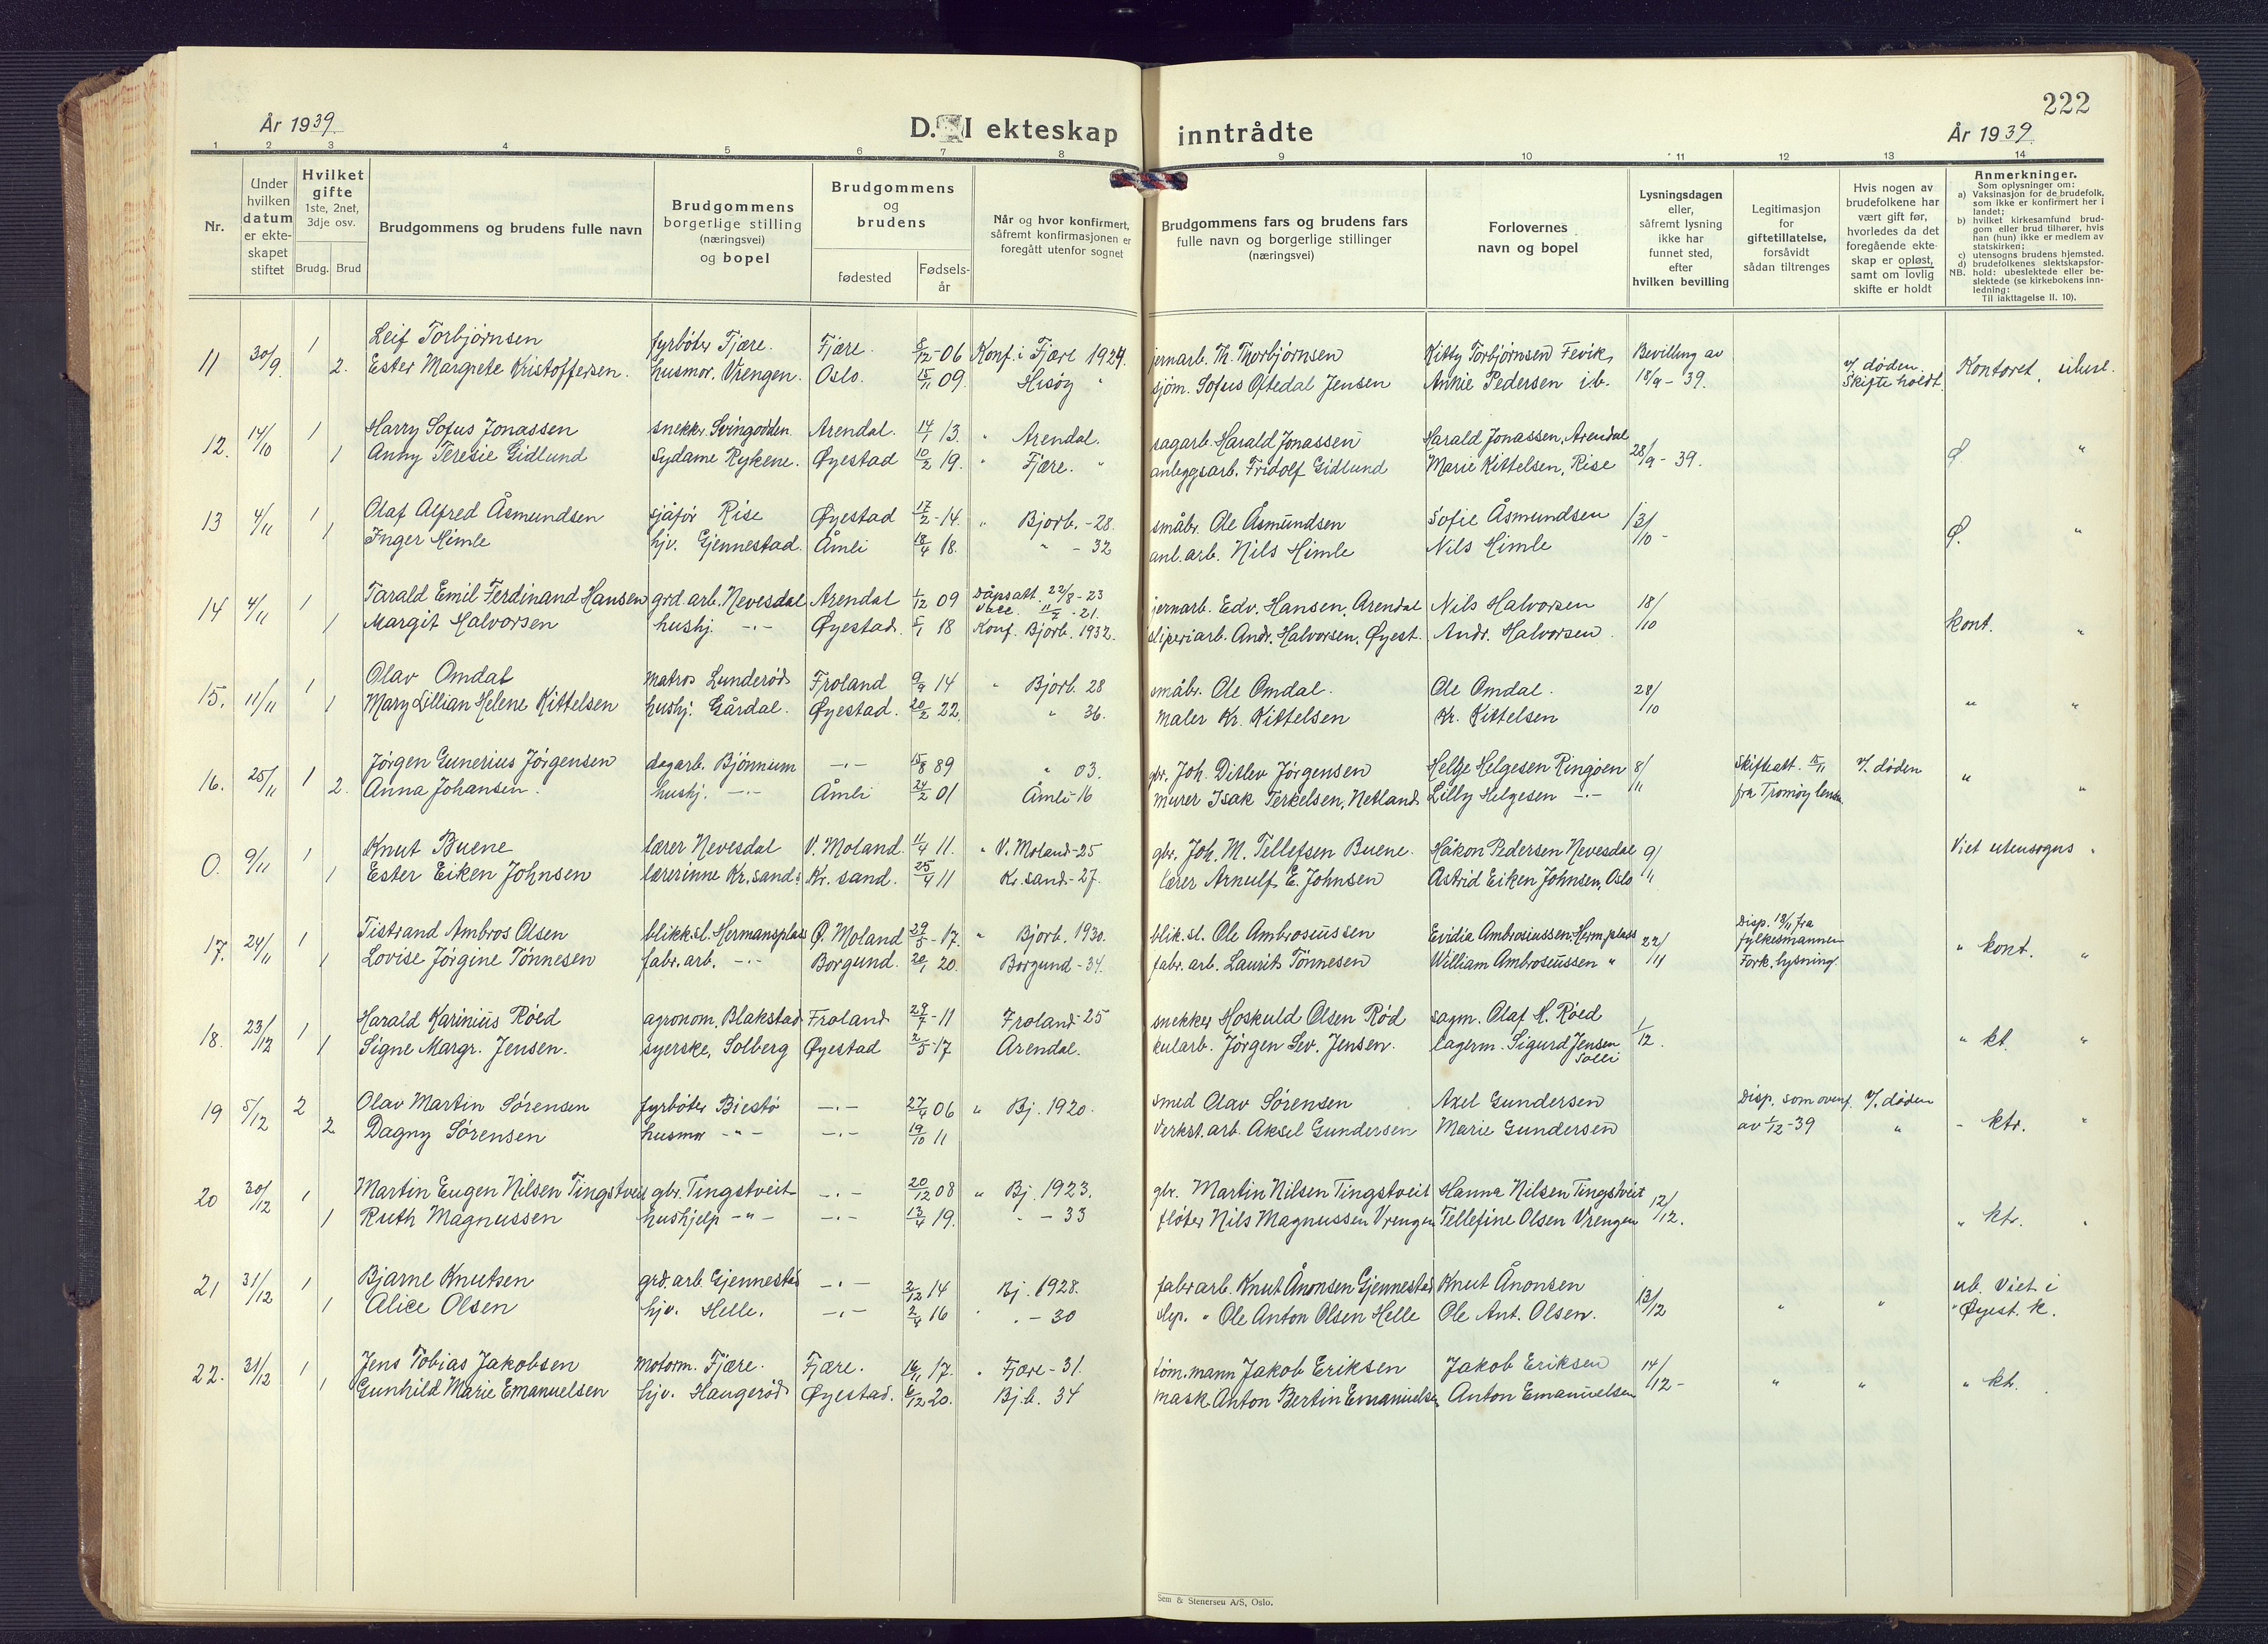 222
År 1939.
D. I ekteskap inntrådte
År 1939.
1 2 3 4 5 6 7 8 9 10 11 12 13 14
Nr.
Under hvilken datum er ekteskapet stiftet
Hvilket gifte 1ste, 2net, 3dje osv.
Brudg. Brud
Brudgommens og brudens fulle navn
Brudgommens borgerlige stilling (næringsvei) og bopel
Brudgommens og brudens
fødested
Fødselsår
Når og hvor konfirmert, såfremt konfirmasjonen er foregått utenfor sognet
Brudgommens fars og brudens fars fulle navn og borgerlige stillinger (næringsvei)
Forlovernes navn og bopel
Lysningsdagen eller, såfremt lysning ikke har funnet sted, efter hvilken bevilling
Legitimasjon for giftetillatelse, forsåvidt sådan tiltrenges
Hvis nogen av brudefolkene har vært gift før, hvorledes da det foregående ekteskap er opløst, samt om lovlig skifte er holdt
Anmerkninger.
Som oplysninger om:
a) Vaksinasjon for de brudefolk, som ikke er konfirmert her i landet;
b) hvilket kirkesamfund brudgom eller brud tilhører, hvis han (hun) ikke er medlem av statskirken;
c) utensogns brudens hjemsted.
d) brudefolkenes slektskapsforhold: ubeslektede eller beslektede (se kirkebokens innledning:
NB.
Til iakttagelse II. 10).
11 30/9. 1 Leif Torbjørnsen fyrbøter Fjære. Fjære. 8/12-06 Konf. i Fjære 1924. jernarb. Th. Thorbjørnsen Kitty Torbjørnsen Fevik, Bevilling av v/ døden. Kontoret, ubesl.
2. Ester Margrete Kristoffersen. husmor, Vrengen. Oslo. 15/11 09. Hisøy " sjøm. Sofus Oftedal Jensen Annie Pedersen ib. 18/9-39. Skifte holdt.
12. 14/10 1 Harry Sofus Jonassen snekk. Svingodden Arendal. 14/1 13. " Arendal. sagarb. Harald Jonassen Harald Jonassen, Arendal 28/9-39. Ø "
1 Anny Teresie Gidlund Sydame Rykene. Øyestad 10/2 19. " Fjære. " anleggsarb. Fridolf Gidlund Marie Kittelsen, Rise
13 4/11 1 Olaf Alfred Åsmundsen sjåfør Rise Øyestad 17/2-14. " Bjorb.-28. småbr. Ole Åsmundsen Sofie Åsmundsen 13/10- Ø. "
1 Inger Himle hjv. Gjennestad. Åmli 18/4 18. " - 32 anl.arb. Nils Himle Nils Himle
14 4/11 1 Tarald Emil Ferdinand Hansen grd.arb. Nevesdal Arendal 1/12 09 Dåpsatt. 22/8-23 jernarb. Edv. Hansen, Arendal Nils Halvorsen 18/10 kont. "
1 Margit Halvorsen hushj. -"- Øyestad. 5/1 18 Konf. Bjorb. 1932. sliperiarb. Andr. Halvorsen, Øyest. Andr. Halvorsen.
15. 11/11 1 Olav Omdal matros Lunderød Froland 9/9 14 " Bjorb. 28 småbr. Ole Omdal. Ole Omdal. 28/10 " "
1 Mary Lillian Helene Kittelsen hushj. Gårdal. Øyestad. 20/2 22. " 36. maler Kr. Kittelsen Kr. Kittelsen
16. 25/11 1 Jørgen Gunerius Jørgensen dagarb. Bjønnum -"- 15/8 89 " 03. gbr. Joh. Ditlev Jørgensen Helge Helgesen Ringøen 8/11 Skifteatt. 15/11 v/. døden "
2. Anna Johansen. hushj. -"- Åmli 24/2 01 Åmli-16 murer Isak Terkelsen, Netland Lilly Helgesen -"- fra Tromøy lensm. "
0. 9/11 1 Knut Buene lærer Nevesdal V. Moland. 11/4 11. " V. Moland-25 gbr. Joh. M. Tellefsen Buene. Håkon Pedersen Nevesdal 9/11 Viet utensogns "
1 Ester Eiken Johnsen lærerinne Kr.sand. Kr. sand. 25/4 11 Kr.sand-27. lærer Arnulf E. Johnsen Astrid Eiken Johnsen, Oslo
17. 24/11 1 Tistrand Ambros Olsen blikk.sl. Hermansplass Ø. Moland 29/5-17. " Bjorb. 1930. blik.sl. Ole Ambrosiussen Evidia Ambrosiussen, Herm.plass 22/11 Disp. 18/11 fra fylkesmannen " kont. "
1 Lovise Jørgine Tønnesen fabr.arb. -"- Borgund. 20/1 20. Borgund-34. fabr.arb. Laurits Tønnesen William Ambrosiussen " Fork. lysning.
18. 23/12 1 Harald Karinius Røed agronom, Blakstad Froland 29/7-11 Froland-25 snekker Hoskuld Olsen Rød sagm. Olaf H. Røed 1/12. " kt. "
1 Signe Margr. Jensen. syerske, Solberg Øyestad 2/5-17 Arendal. kularb. Jørgen Sev. Jensen. lagerm. Sigurd Jensen Solli
19 5/12 2 Olav Martin Sørensen fyrbøter Biestø -"- 27/4 06 " Bj. 1920. smed Olav Sørensen Axel Gundersen Disp. som ovenf. v/. døden - ktr. "
2 Dagny Sørensen husmor -"- -"- 19/10 11 verkst.arb. Aksel Gundersen Marie Gundersen av 1/12-39 "
20 30/12 1 Martin Eugen Nilsen Tingstveit gbr. Tingstveit -"- 20/12 08 " Bj. 1923. gbr. Martin Nilsen Tingstveit Hanna Nilsen Tingstveit 12/12. " ktr. "
1 Ruth Magnussen hushjelp -"- -"- 13/4 19. " - 33 fløter Nils Magnussen Vrengen Tellefine Olsen Vrengen
21 31/12 1 Bjarne Knutsen grd.arb. Gjennestad -"- 2/12 14 Bj. 1928. fabr.arb. Knut Ånonsen Gjennestad Knut Ånonsen 13/12 " " ub. Viet i
1 Alice Olsen hjv. Helle. -"- 2/4 16 " - 30 slip. " Ole Anton Olsen Helle Ole Ant. Olsen. " Øyest. k.
22. 31/12 1 Jens Tobias Jakobsen motorm. Fjære. Fjære. 16/11 17. " Fjære-31. tøm.mann Jakob Eriksen Jakob Eriksen 14/12- " " " kt.
1 Gunhild Marie Emanuelsen hjv. Haugerød Øyestad. 6/12 20. Bj.b. 34 mask. Anton Bertin Emanuelsen Anton Emanuelsen
Sem & Stenersen A/S, Oslo.